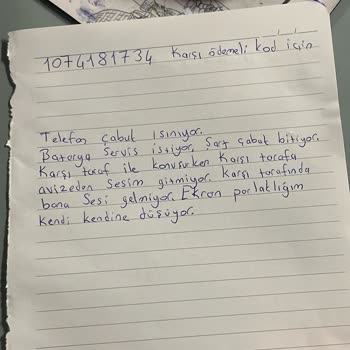 1074181734 Karşı ödemeli kod için
Telefon çabuk ısınıyor.
Batarya Servis istiyor, Şarj çabuk bitiyor.
Karşı taraf ile konuşurken Karşı tarafa
avizeden Sesim gitmiyor. Karşı tarafında
bana Sesi gelmiyor. Ekran parlaklığım
Kendi kendine düşüyor.